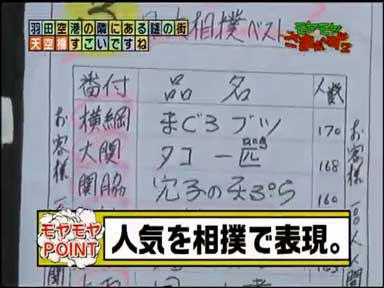 羽田空港の隣にある謎の街
天空橋すごいですね
モヤモヤさまぁ~ず2
相撲ベスト
番付 品名 人数
横綱 まぐろブツ 170
大関 タコ一匹 168
関脇 穴子の天ぷら 160
お客様
お客様
モヤモヤ
POINT
人気を相撲で表現。